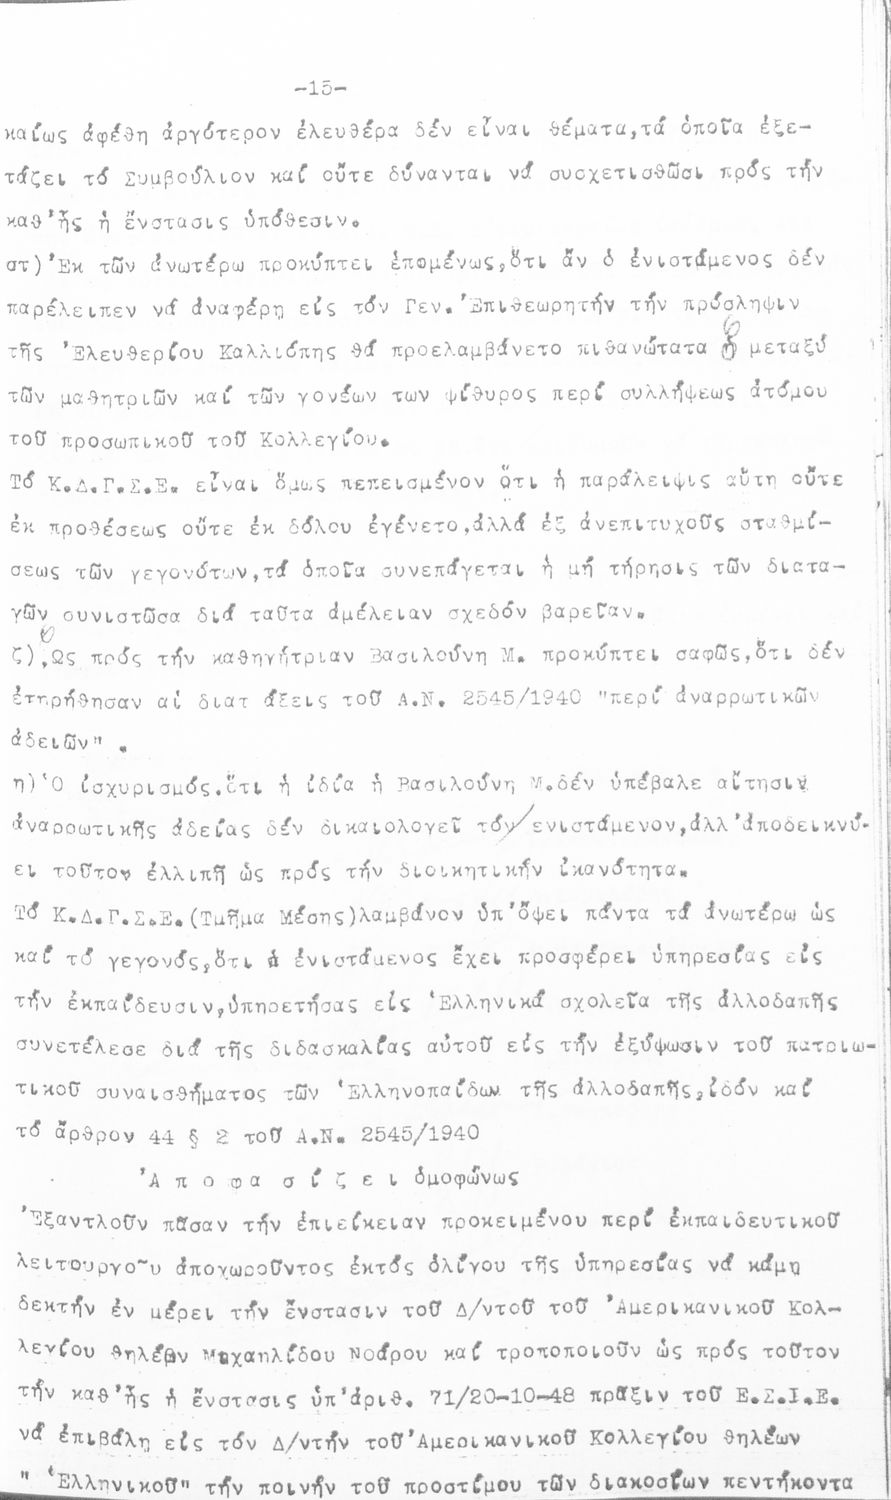 -15-
καίως ἀφέθη ἀργότερον ἐλευθέρα δέν εἶναι θέματα,τά ὁποῖα ἐξε-
τάζει τό Συμβούλιον καί οὔτε δύνανται νά συσχετισθῶσι πρός τήν
καθ'ἧς ἡ ἔνστασις ὑπόθεσιν.
στ)'Εκ τῶν ἀνωτέρω προκύπτει ἑπομένως,ὅτι ἄν ὁ ἐνιστάμενος δέν
παρέλειπεν νά ἀναφέρῃ εἰς τόν Γεν.'Επιθεωρητήν τήν πρόσληψιν
τῆς 'Ελευθερίου Καλλιόπης θά προελαμβάνετο πιθανώτατα ὁ μεταξύ
τῶν μαθητριῶν καί τῶν γονέων των ψίθυρος περί συλλήψεως ἀτόμου
τοῦ προσωπικοῦ τοῦ Κολλεγίου.
Τό Κ.Δ.Γ.Σ.Ε. εἶναι ὅμως πεπεισμένον ὅτι ἡ παράλειψις αὕτη οὔτε
ἐκ προθέσεως οὔτε ἐκ δόλου ἐγένετο,ἀλλά ἐξ ἀνεπιτυχοῦς σταθμί-
σεως τῶν γεγονότων,τά ὁποῖα συνεπάγεται ἡ μή τήρησις τῶν διατα-
γῶν συνιστῶσα διά ταῦτα ἀμέλειαν σχεδόν βαρεῖαν.
ζ),Ως πρός τήν καθηγήτριαν Βασιλούνη Μ. προκύπτει σαφῶς,ὅτι δέν
ἐτηρήθησαν αἱ διατ άξεις τοῦ Α.Ν. 2545/1940 "περί ἀναρρωτικῶν
ἀδειῶν" .
η)'Ο ἰσχυρισμός.ὅτι ἡ ἰδία ἡ Βασιλούνη Μ.δέν ὑπέβαλε αἴτησιν
ἀναρρωτικῆς ἀδείας δέν δικαιολογεῖ τόν ἐνιστάμενον,ἀλλ'ἀποδεικνύ-
ει τοῦτον ἐλλιπῆ ὡς πρός τήν διοικητικήν ἱκανότητα.
Τό Κ.Δ.Γ.Σ.Ε.(Τμῆμα Μέσης)λαμβάνον ὑπ'ὄψει πάντα τά ἀνωτέρω ὡς
καί τό γεγονός,ὅτι ὁ ἐνιστάμενος ἔχει προσφέρει ὑπηρεσίας εἰς
τήν ἐκπαίδευσιν,ὑπηρετήσας εἰς 'Ελληνικά σχολεῖα τῆς ἀλλοδαπῆς
συνετέλεσε διά τῆς διδασκαλίας αὐτοῦ εἰς τήν ἐξύψωσιν τοῦ πατριω-
τικοῦ συναισθήματος τῶν 'Ελληνοπαίδων τῆς ἀλλοδαπῆς,ἰδόν καί
τό ἄρθρον 44 § 2 τοῦ Α.Ν. 2545/1940
'Α π ο φ α σ ί ζ ε ι ὁμοφώνως
'Εξαντλοῦν πᾶσαν τήν ἐπιείκειαν προκειμένου περί ἐκπαιδευτικοῦ
λειτουργο~υ ἀποχωροῦντος ἐκτός ὀλίγου τῆς ὑπηρεσίας νά κάμῃ
δεκτήν ἐν μέρει τήν ἔνστασιν τοῦ Δ/ντοῦ τοῦ 'Αμερικανικοῦ Κολ-
λεγίου θηλέων Μιχαηλίδου Νοάρου καί τροποποιοῦν ὡς πρός τοῦτον
τήν καθ'ἧς ἡ ἔνστασις ὑπ'ἀριθ. 71/20-10-48 πρᾶξιν τοῦ Ε.Σ.Ι.Ε.
νά ἐπιβάλῃ εἰς τόν Δ/ντήν τοῦ'Αμερικανικοῦ Κολλεγίου θηλέων
" 'Ελληνικοῦ" τήν ποινήν τοῦ προστίμου τῶν διακοσίων πεντήκοντα